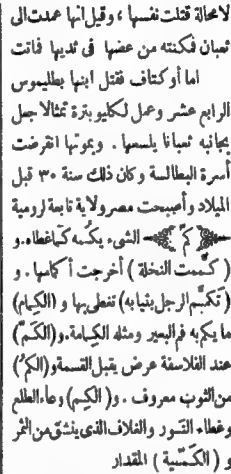 لا محالة قتلت نفسها ، وقيل انها عمدت الى
ثعبان فمكنته من عضها في ثديها فماتت
اما أوكتاف فقتل ابنها بطليموس
الرابع عشر وعمل لكليوبترة تمثالا جعل
بجانبه ثعبانا يلسعها . وبموتها انقرضت
أسرة البطالسة وكان ذلك سنة ٣٠ قبل
الميلاد وأصبحت مصر ولاية تابعة لرومية
كمّ الشيء يكُمه كمّا غطاه . و
( كمَّمت النخلة ) أخرجت أكمامها . و
( تكمّم الرجل بثيابه ) تغطى بها و ( الكِمام )
ما يكم به فم البعير ومثله الكِمامة . و ( الكَمّ )
عند الفلاسفة عرض يقبل القسمة و ( الكُمّ )
من الثوب معروف . و ( الكِم ) وعاء الطلع
وغطاء النَّور والغلاف الذي ينشق من الثمر
و ( الكَمّية ) المقدار